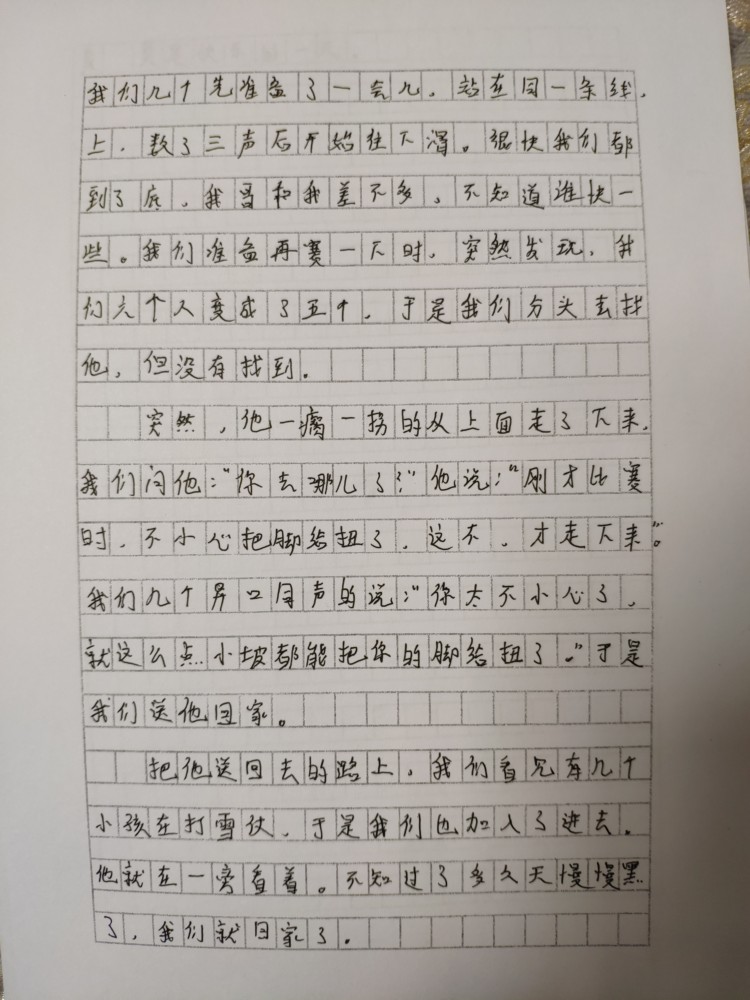 我们几个先准备了一会儿，站在同一条线，
上，数了三声后开始往下滑。很快我们都
到了底，我哥和我差不多，不知道谁快一
些。我们准备再赛一下时，突然发现，我
们六个人变成了五个，于是我们分头去找
他，但没有找到。
突然，他一瘸一拐的从上面走了下来，
我们问他：“你去哪儿了？”他说：“刚才比赛
时，不小心把脚给扭了，这不，才走下来”。
我们几个异口同声的说：“你太不小心了，
就这么点小坡都能把你的脚给扭了。”于是
我们送他回家。
把他送回去的路上，我们看见有几个
小孩在打雪仗，于是我们也加入了进去。
他就在一旁看着。不知过了多久天慢慢黑
了，我们就回家了。